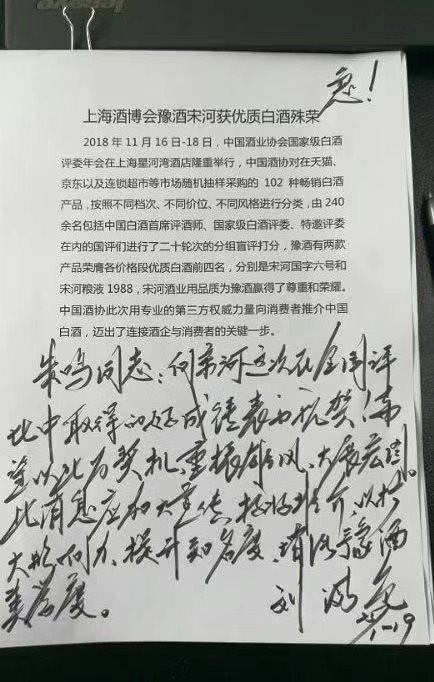 急!
上海酒博会豫酒宋河获优质白酒殊荣
2018年11月16日-18日，中国酒业协会国家级白酒
评委年会在上海星河湾酒店隆重举行，中国酒协对在天猫、
京东以及连锁超市等市场随机抽样采购的 102 种畅销白酒
产品，按照不同档次、不同价位、不同风格进行分类，由 240
余名包括中国白酒首席评酒师、国家级白酒评委、特邀评委
在内的国评们进行了二十轮次的分组盲评打分，豫酒有两款
产品荣膺各价格段优质白酒前四名，分别是宋河国字六号和
宋河粮液 1988，宋河酒业用品质为豫酒赢得了尊重和荣耀。
中国酒协此次用专业的第三方权威力量向消费者推介中国
白酒，迈出了连接酒企与消费者的关键一步。
朱鸣同志：向宋河这次在全国评
比中取得的好成绩表示祝贺！希
望以此为契机，重振雄风，大展宏图。
此消息应加大宣传、推介，以扩
大影响力、提升知名度、豫酒
美誉度。
刘满仓
11-19